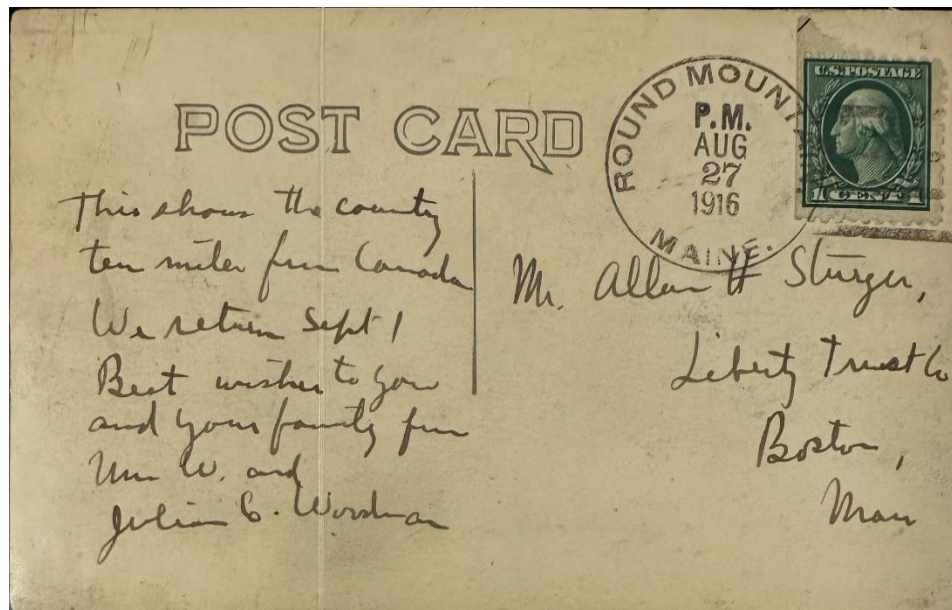 POST CARD
ROUND MOUNTAIN
P.M.
AUG
27
1916
MAINE.
U.S. POSTAGE
1 CENT 1
This shows the country
ten miles from Canada
We return Sept 1
Best wishes to you
and your family from
Mrs W. and
Julian C. Woodman
Mr. Allan H Sturges,
Liberty Trust Co
Boston,
Mass